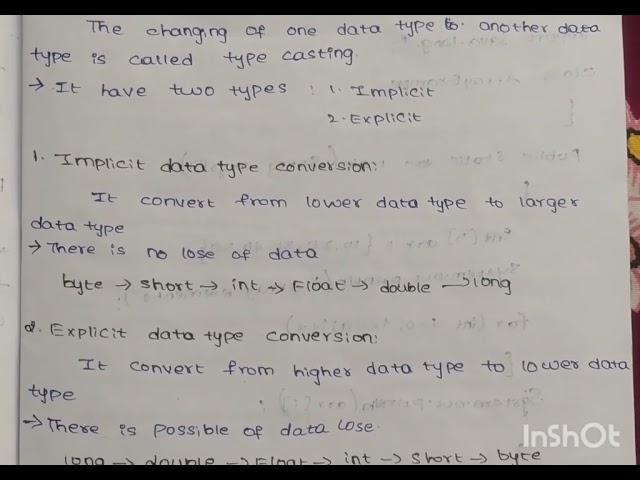 The changing of one data type to another data
type is called type casting.
→ It have two types : 1. Implicit
2. Explicit
1. Implicit data type conversion:
It convert from lower data type to larger
data type
→ There is no lose of data
byte → short → int → Float → double → long
2. Explicit data type conversion:
It convert from higher data type to lower data
type
→ There is possible of data lose.
long → double → Float → int → short → byte
InShOt